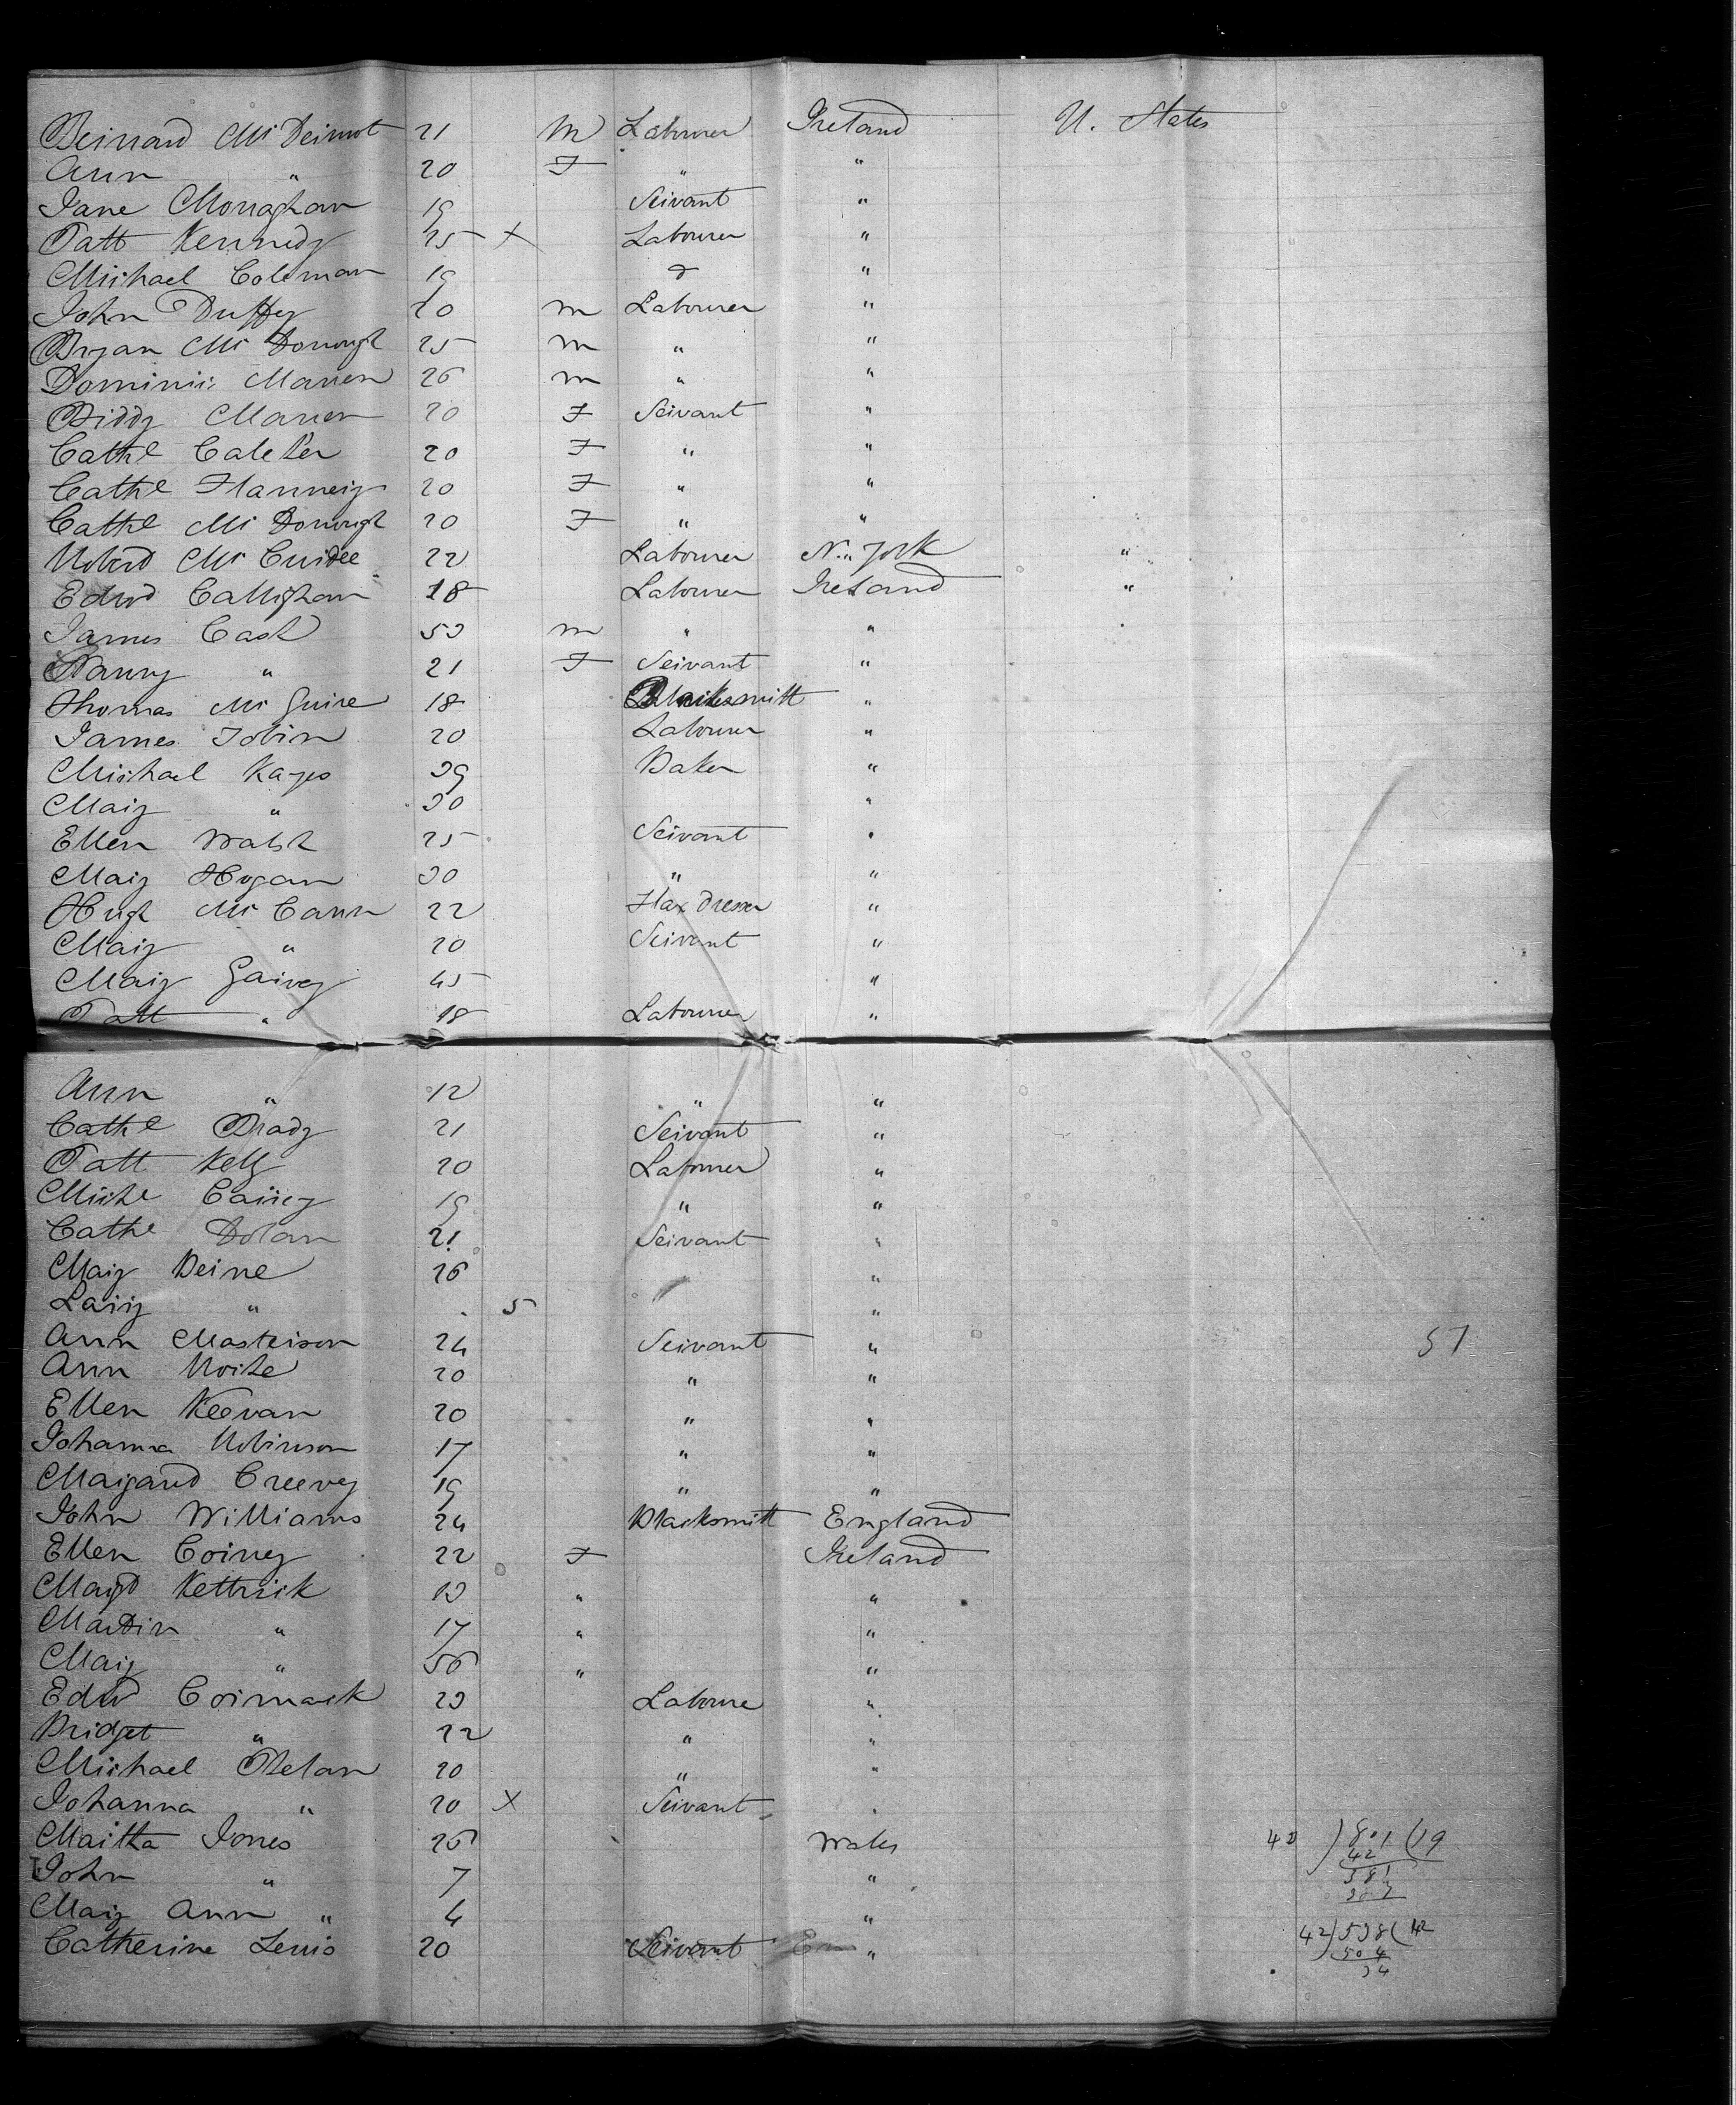 Bernard McDermot 21 M Labourer Ireland U. States
Ann " 20 F " "
Jane Monaghan 19 Servant "
Patt Kennedy 25 x Labourer "
Michael Coleman 19 d "
John Duffy 20 m Labourer "
Bryan McDonough 25 m " "
Dominic Mannen 26 m " "
Biddy Mannen 20 F Servant "
Cathe 20 F " "
Cathe Flannery 20 F " "
Cathe McDonough 20 F " "
Robert Mc 22 Labourer N. York "
Edwd Callighan 18 Labourer Ireland "
James Cash 53 m " " "
Nanny " 21 F Servant "
Thomas McGuire 18 Blacksmith "
James Tobin 20 Labourer "
Michael Kayes 39 Baker "
Mary " 30 "
Ellen Walsh 25 Servant "
Mary Hogan 30 " "
Hugh McCann 22 Flax dresser "
Mary " 20 Servant "
Mary Garvey 45 "
Patt " 18 Labourer "
Ann " 12 " "
Cathe Brady 21 Servant "
Patt Kelly 20 Labourer "
Miche Carrey 19 " "
Cathe Dolan 21 Servant "
Mary Beirne 26 "
" . 5 "
Ann Masterson 24 Servant " 57
Ann 20 " "
Ellen Keevan 20 " "
Johanna Robinson 17 " "
Margaret Creevey 19 " "
John Williams 24 Blacksmith England
Ellen Corney 22 F Ireland
Margt Kettrick 13 " "
Martin " 17 " "
Mary " 56 " "
Edwd Cormack 23 Laboure "
Bridget " 22 " "
Michael Phelan 20 " "
Johanna " 20 x Servant "
Martha Jones 26 Wales
John " 7 "
Mary Ann " 4 "
Catherine Lewis 20 Servant "
42 ) 801 ( 19
42
381
42 ) 538 ( 12
504
34